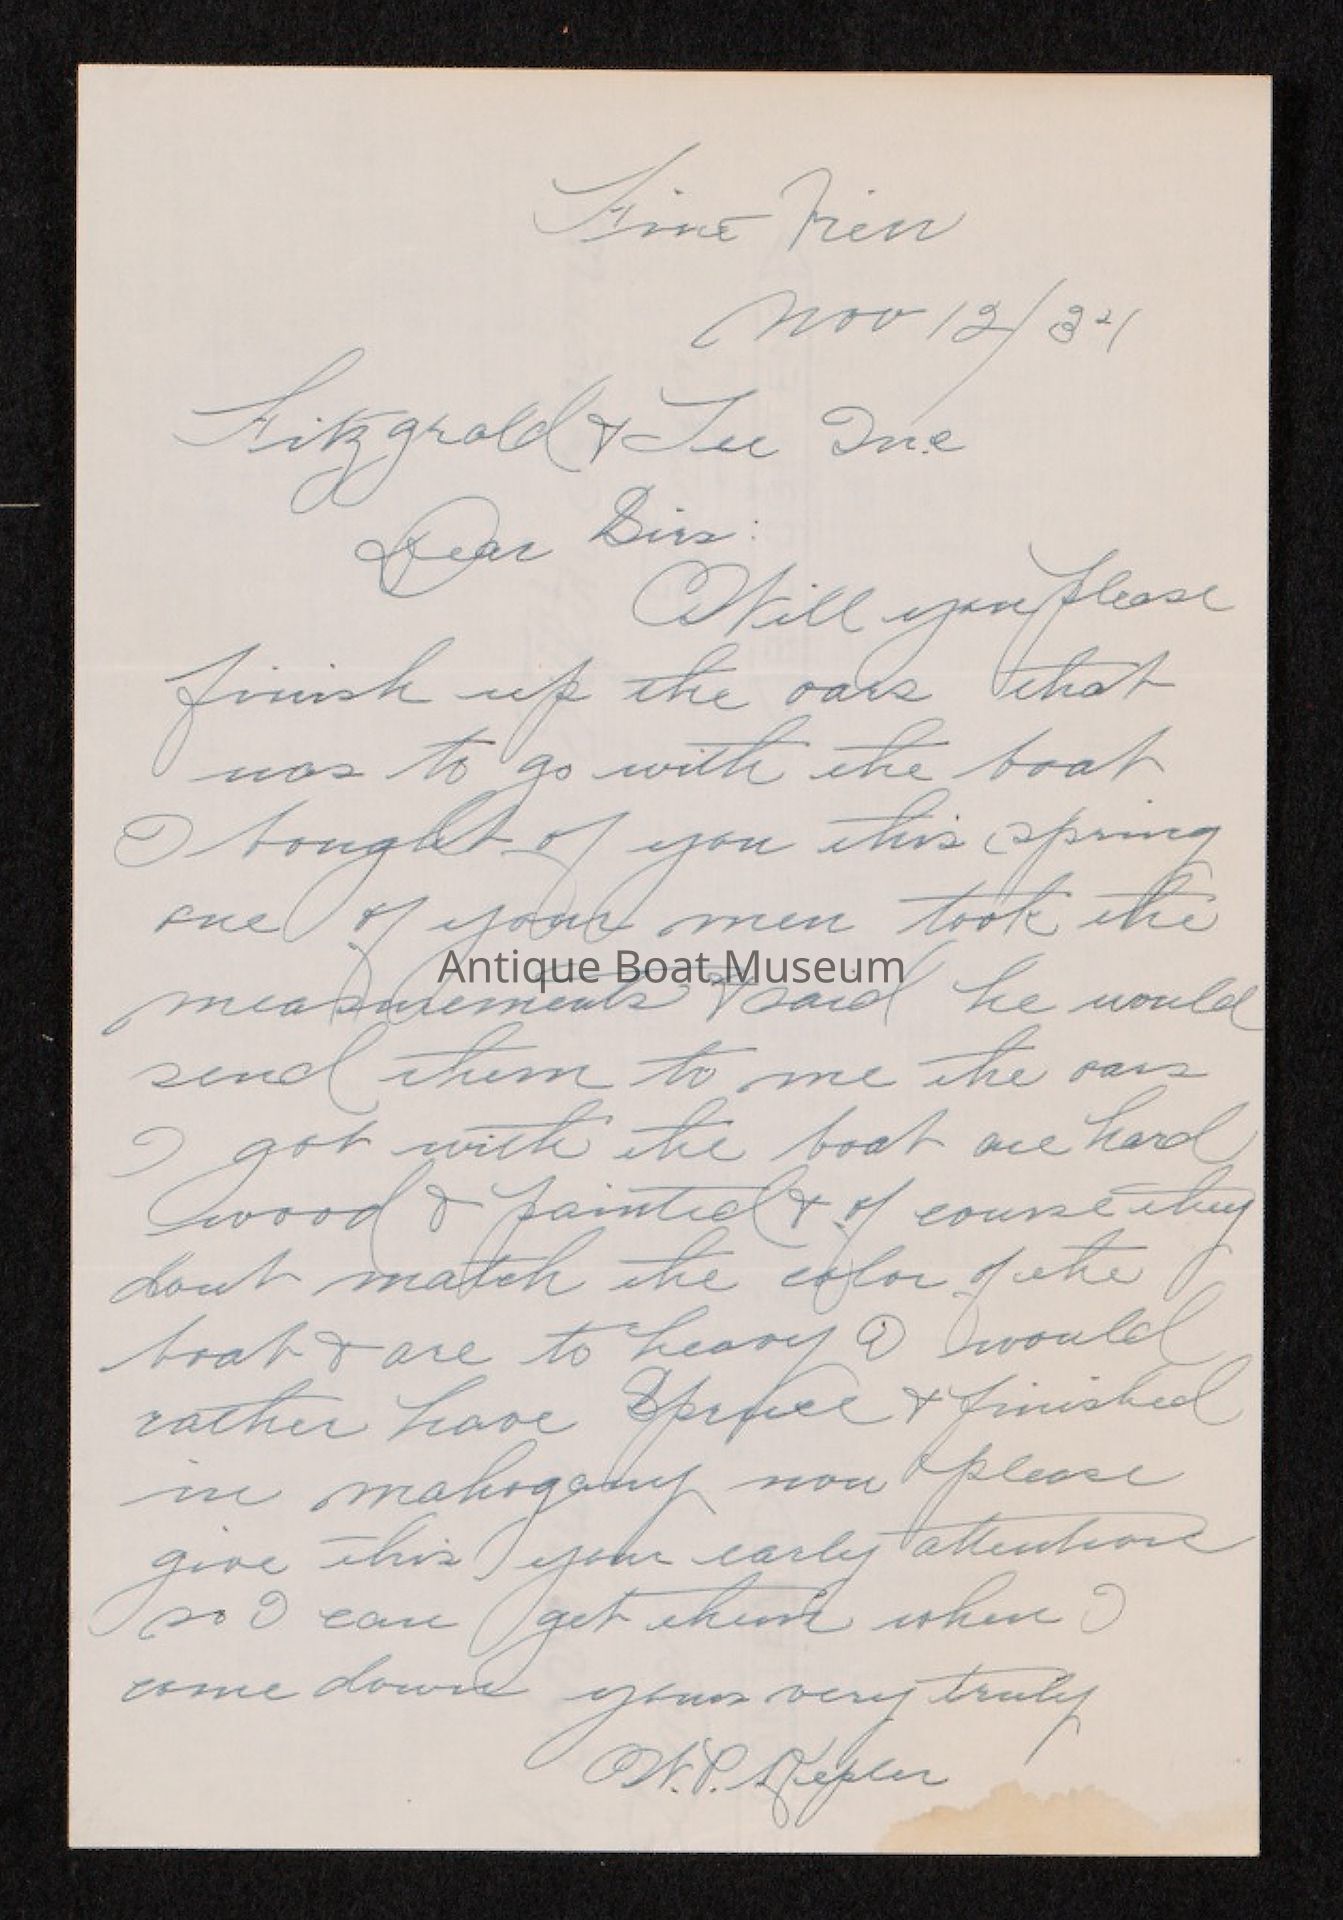 Fine View
Nov 12/34
Fitzgrald & Lee Inc
Dear Sirs:
Will you please
finish up the oars that
was to go with the boat
I bought of you this spring
one of your men took the
Antique Boat Museum
measurements & said he would
send them to me the oars
I got with the boat are hard
wood & painted & of course they
dont match the color of the
boat & are to heavy I would
rather have Spruce & finished
in mahogany now please
give this your early attention
so I can get them when I
come down yours very truly
W.P.